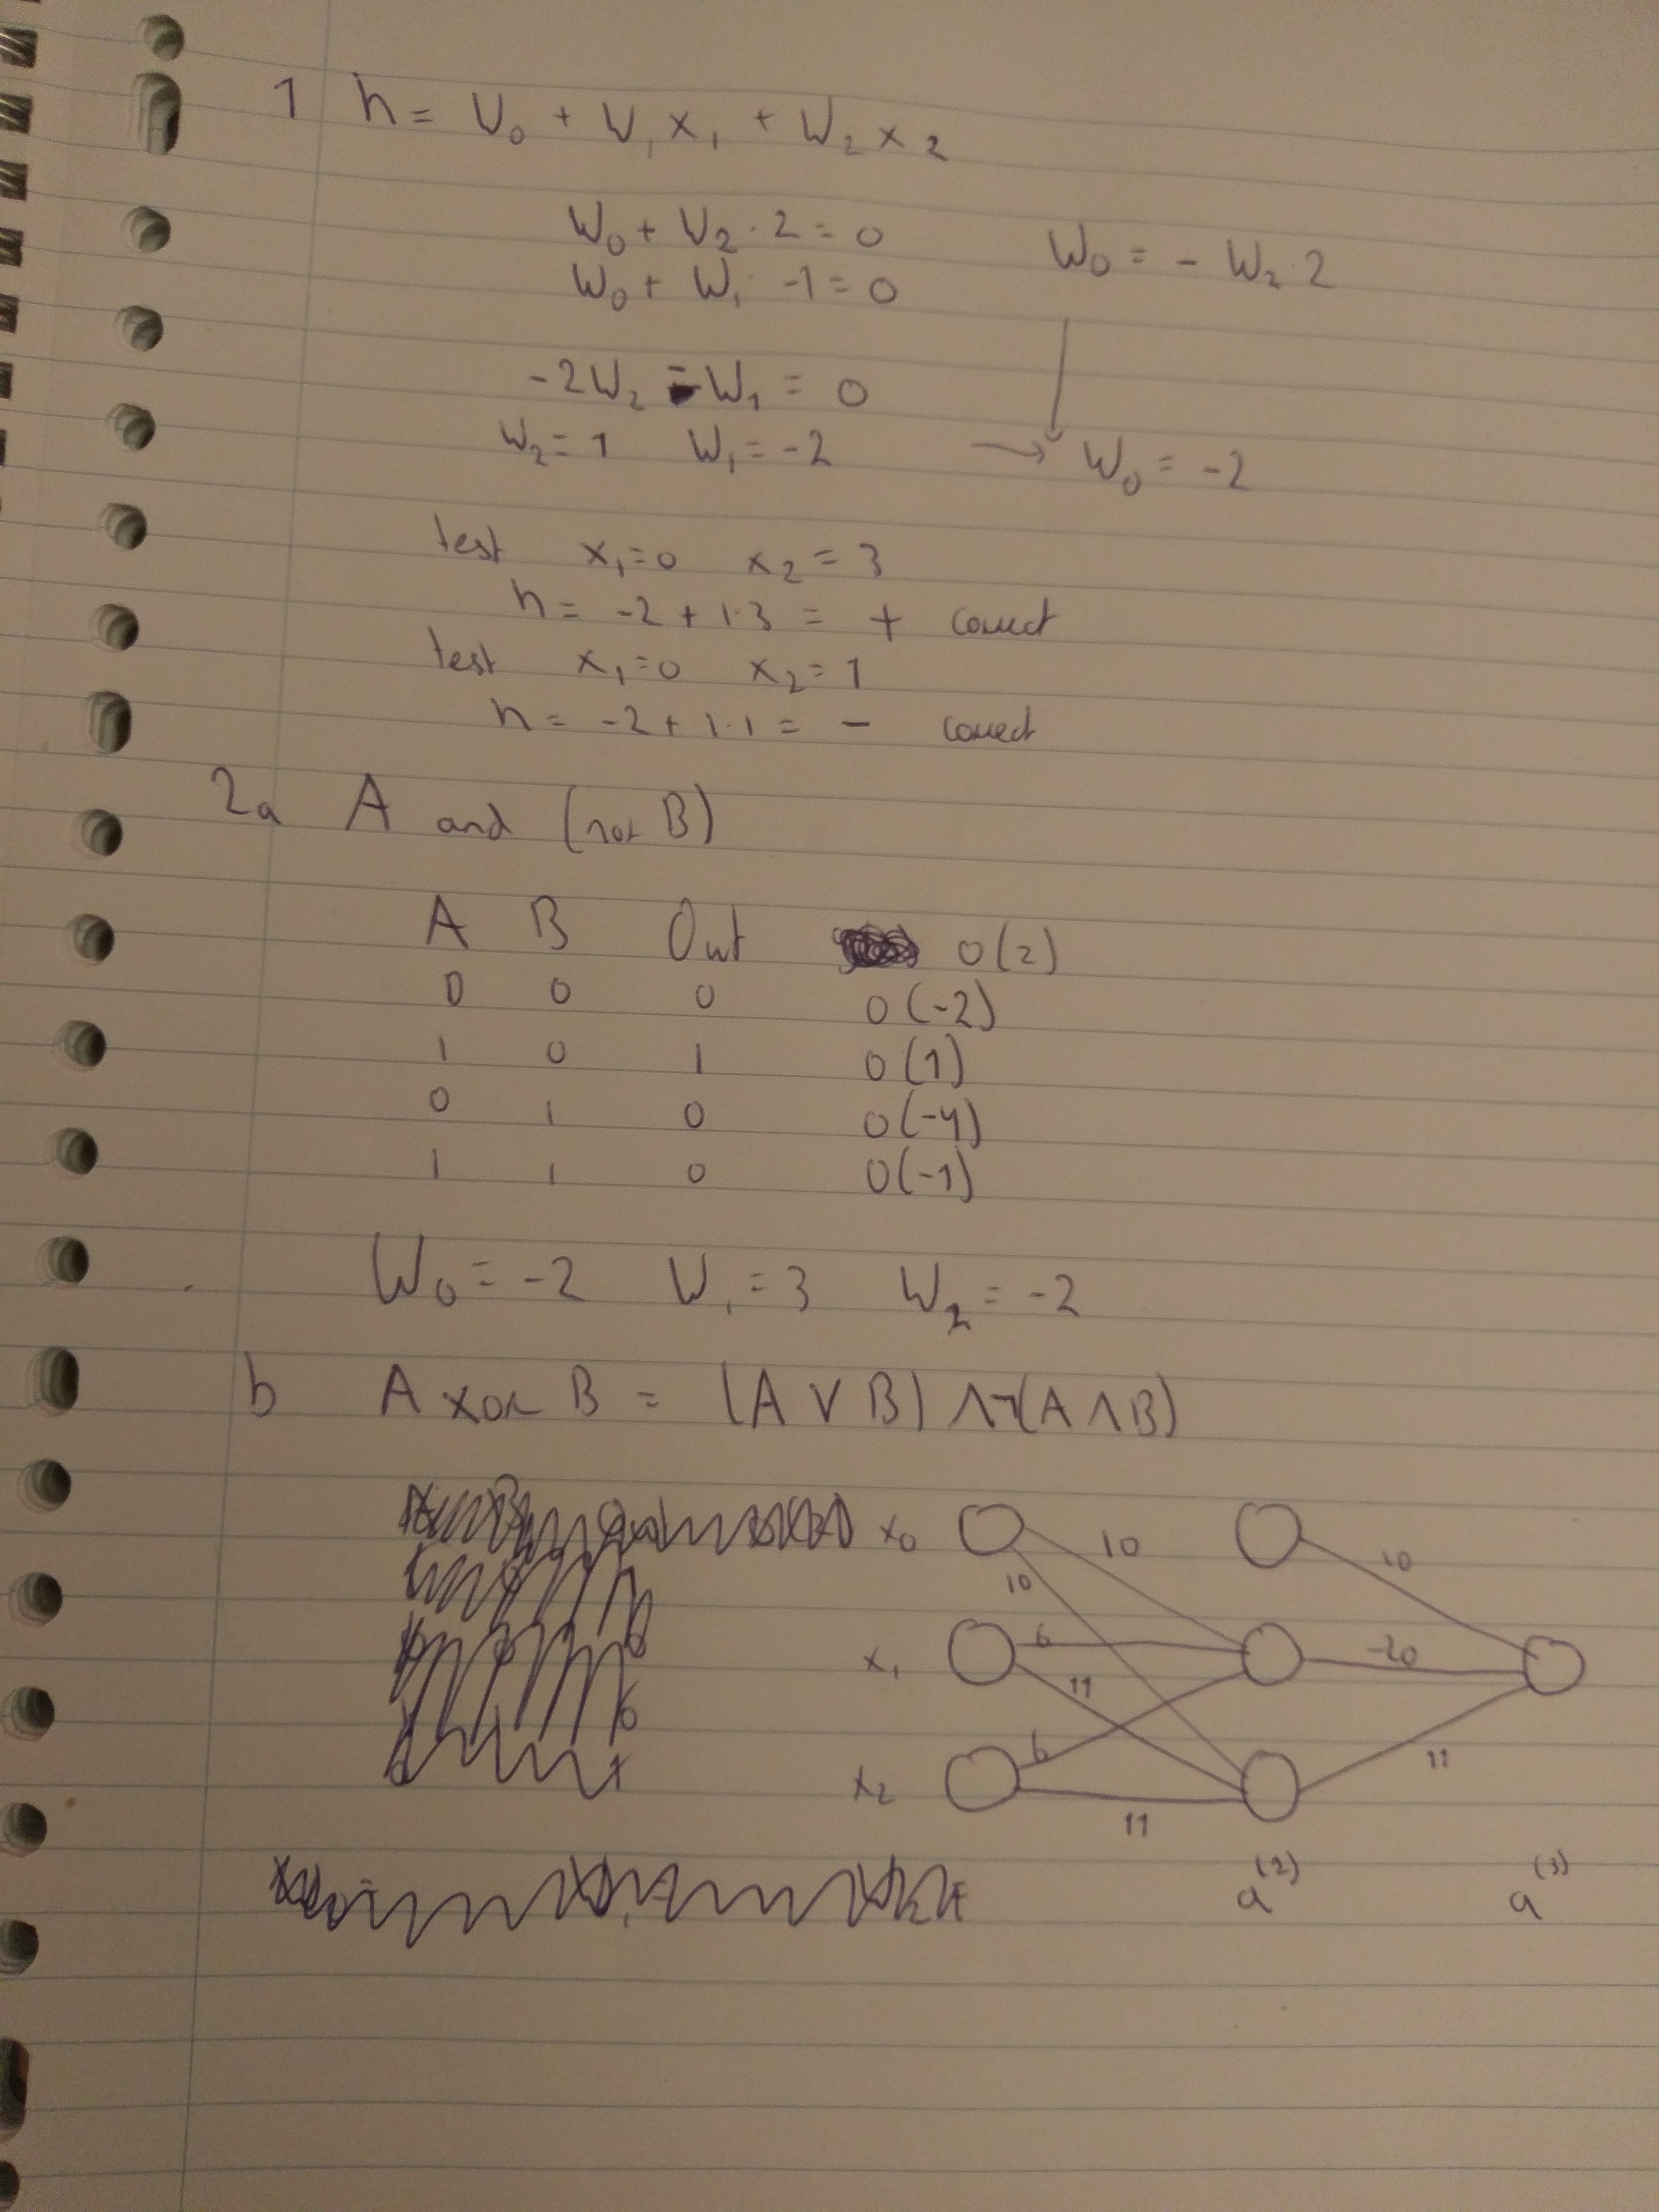 1 h = W₀ + W₁x₁ + W₂x₂
W₀ + W₂·2 = 0 W₀ = -W₂·2
W₀ + W₁ -1 = 0
-2W₂ - W₁ = 0
W₂ = 1 W₁ = -2 → W₀ = -2
test x₁=0 x₂=3
h = -2 + 1·3 = + correct
test x₁=0 x₂=1
h = -2 + 1·1 = - correct
2a A and (not B)
A B Out O(z)
0 0 0 0(-2)
1 0 1 0(1)
0 1 0 0(-4)
1 1 0 0(-1)
W₀ = -2 W₁ = 3 W₂ = -2
b A xor B = (A ∨ B) ∧¬(A ∧ B)
x₀ 10 10
10
x₁ 6 -20
11
x₂ 6 11
11
a⁽²⁾ a⁽³⁾